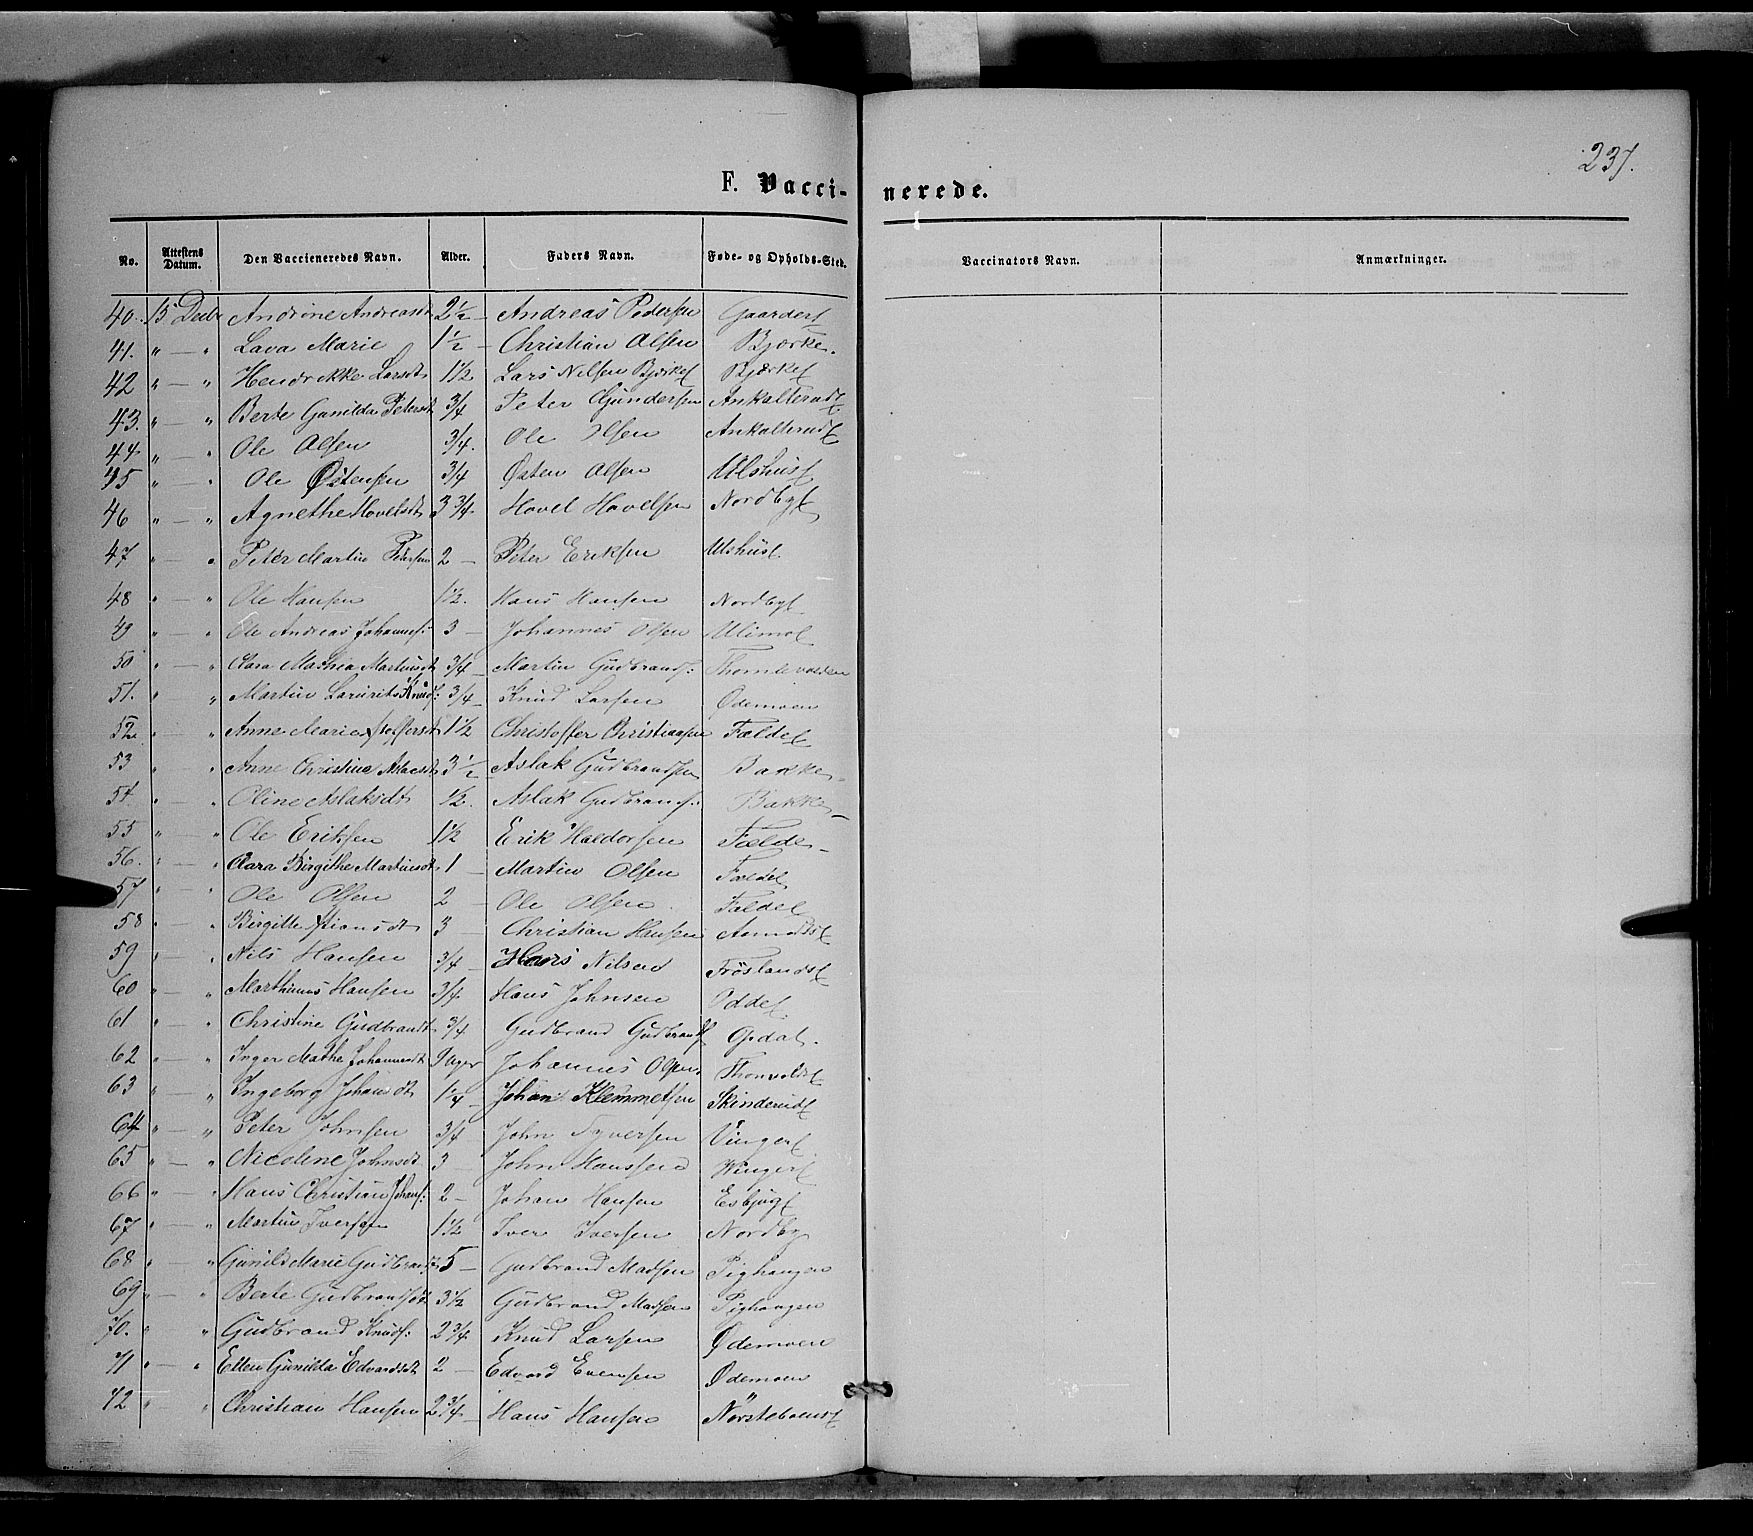 237.
F. Vacci- nerede.
No. Attestens Datum. Den Vaccieneredes Navn. Alder. Faders Navn. Føde- og Opholds-Sted. Vaccinators Navn. Anmærkninger.
40. 15 Decbr Andrine Andreasdt 2½ Andreas Pedersen Gaarder
41. " — " Lava Marie 1½ — Christian Olsen Bjørke.
42 " — " Hendrikke Larsdt 1½ Lars Nilsen Bjørke Bjørke
43. " — " Berte Gunilda Petersdt ¾ Peter Gundersen Ankalterud
44. " — " Ole Olsen ¾. Ole Olsen Ankalterud
45 " — " Ole Østensen ¾ Østen Olsen Ulshus
46 " — " Agnethe Hovelsdt 3¾. Hovel Hovelsen Nordby
47 " — " Peter Martin Petersen 2 — Peter Eriksen Ulshus
48 " — " Ole Hansen 1½. Hans Hansen Nordby
49 " — " Ole Andreas Johannes: 3 — Johannes Olsen
50 " — " Clara Mathea Martinsdt ¾ Martin Gudbrands: Thomlevolden
51. " — " Martin Lauritz Knuds: ¾ — Knud Larsen Odemoen
52. " — " Anne Marie 1½ Christoffer Christiansen Fælde
53 " — " Anne Christine Aslaksdt 3½ Aslak Gudbrandsen Bakke
54 " — " Oline Aslaksdt ½. Aslak Gudbrands: Bakke
55 " — " Ole Eriksen 1½ Erik Haldorsen Fælde
56. " — " Clara Birgithe Martinsdt 1 — Martin Olsen Fælde
57 " — " Ole Olsen 2 — Ole Olsen Fælde
58 " — " Birgitte 3 — Christian Hansen
59 " — " Nils Hansen ¾ — Hans Nilsen Frøslands
60 " — " Marthinus Hansen ¾ Hans Johnsen Odde
61 " — " Christine Gudbrandt ¾ Gudbrand Gudbrands Opdal.
62 " — " Inger Mathe Johannesdt 9 uger Johannes Olsen
63 " — " Ingeborg Johansdt 1¼ — Johan Klemmetsen Skinderud
64 " — " Peter Johnsen ¾ John Syversen Vinger
65 " — " Nicoline Johnsdt 3 John Hanssen Winger
66 " — " Hans Christian Johans: 2 — Johan Hansen Esbjug
67 " — " Martin Iversen 1½ Iver Iversen Nordby
68 " — " Gunild Marie Gudbrandsdt 5 — Gudbrand Madsen Pighaugen
69 " — " Berte Gudbrandsdt 3½ Gudbrand Madsen Pighaugen
70. " — " Gudbrand Knuds: 2¾ Knud Larsen Ødemoen
71 " — " Ellen Gunilda Edvardsdt 2 — Edvard Evensen Ødemoen
72 " — " Christian Hansen 2¾ — Hans Hansen